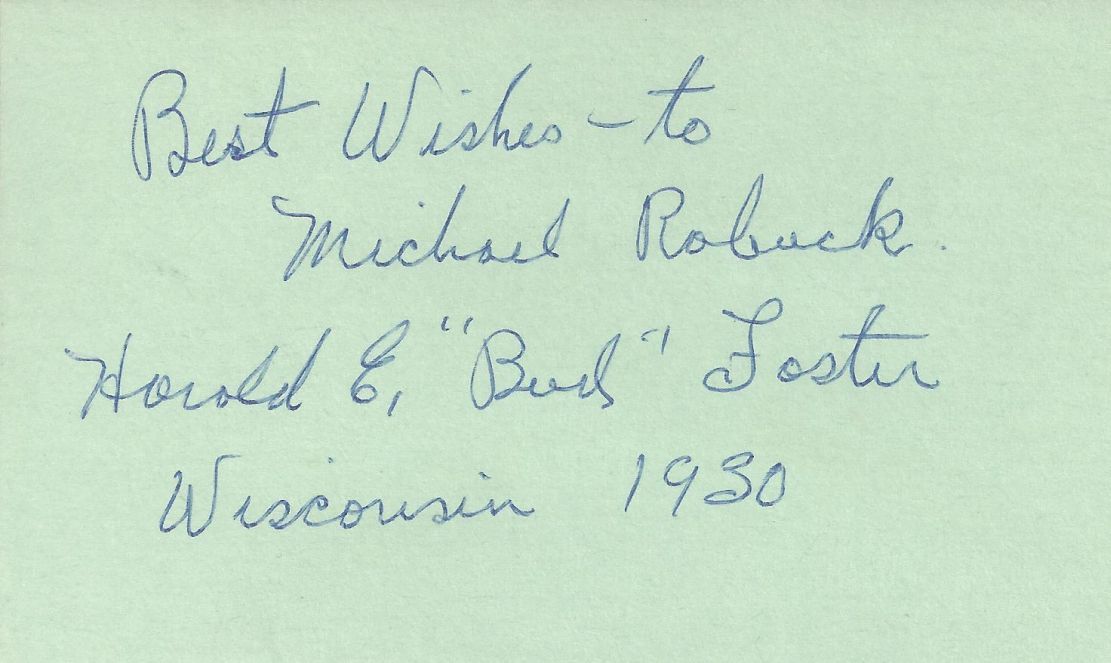 Best Wishes - to
Michael Robuck.
Harold E. "Bud" Foster
Wisconsin 1930